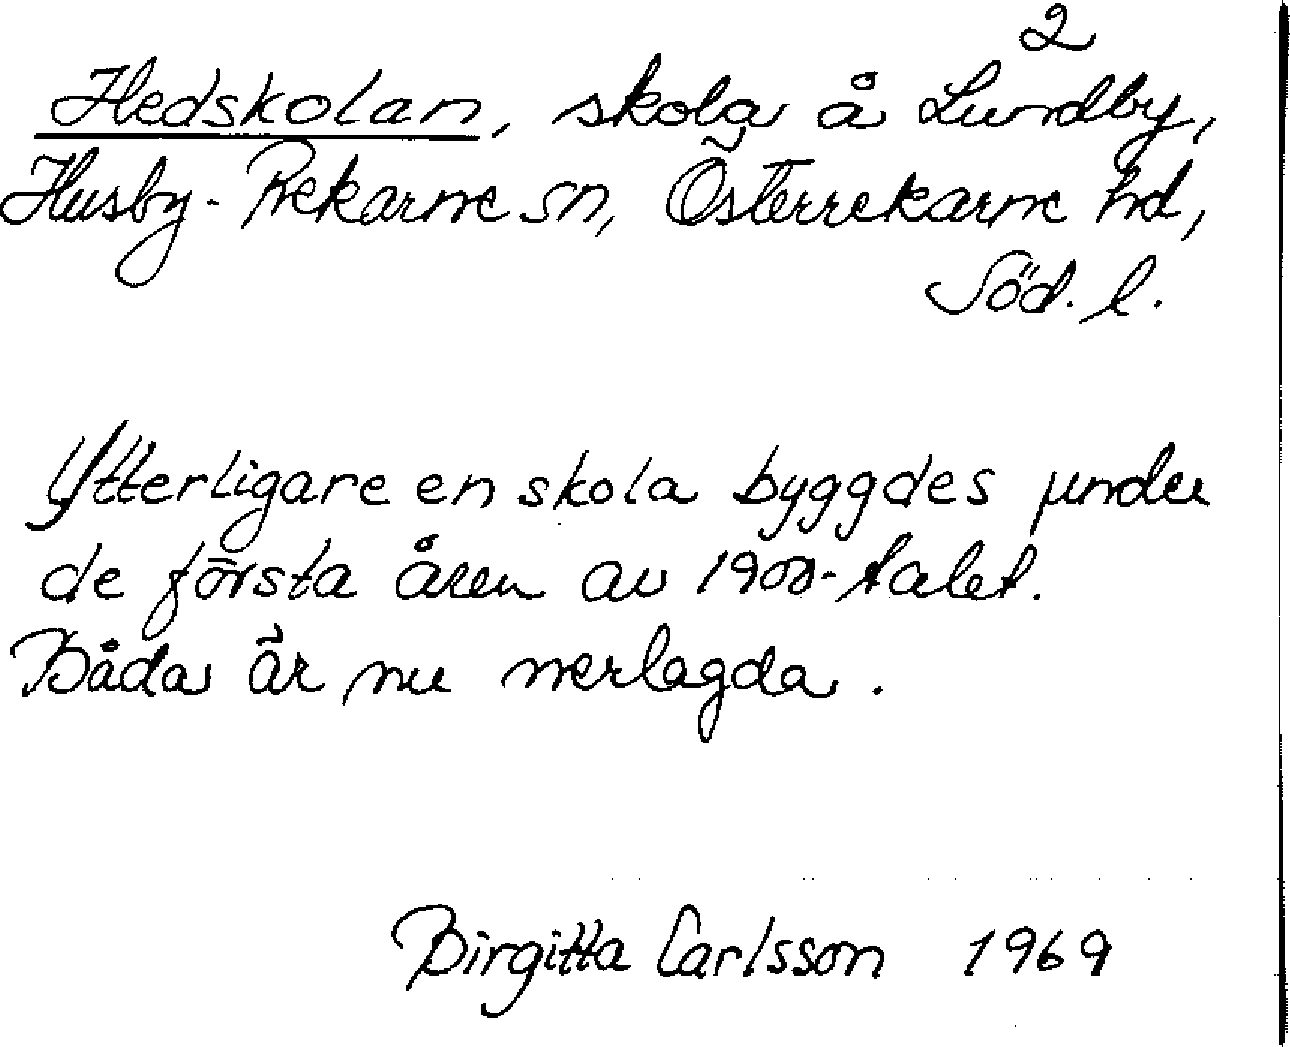 2
Hedskolan, skola å Lundby,
Husby-Rekarne sn, Österrekarne hd,
Söd. l.
Ytterligare en skola byggdes under
de första åren av 1900-talet.
Båda är nu nerlagda.
Birgitta Carlsson 1969